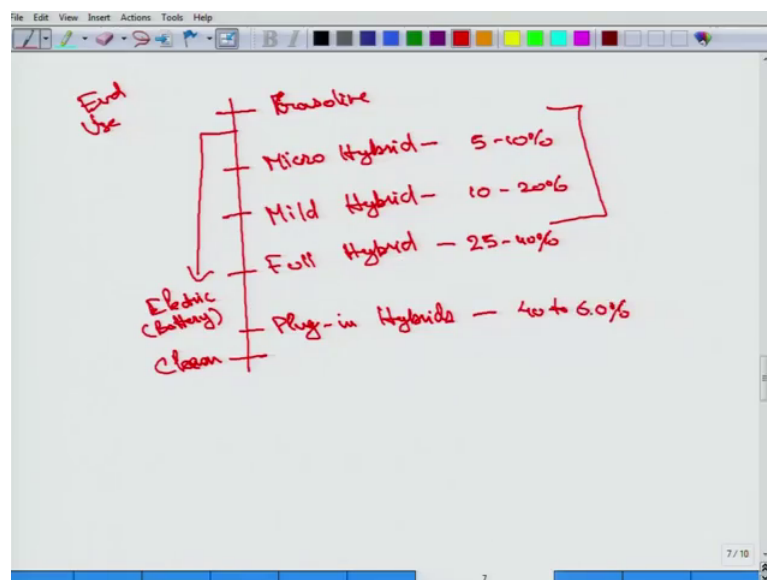 File Edit View Insert Actions Tools Help
End
Use
Gasoline
Micro Hybrid - 5-10%
Mild Hybrid - 10-20%
Full Hybrid - 25-40%
Electric
(Battery)
Plug-in Hybrids - 40 to 60%
Clean
7/10
7